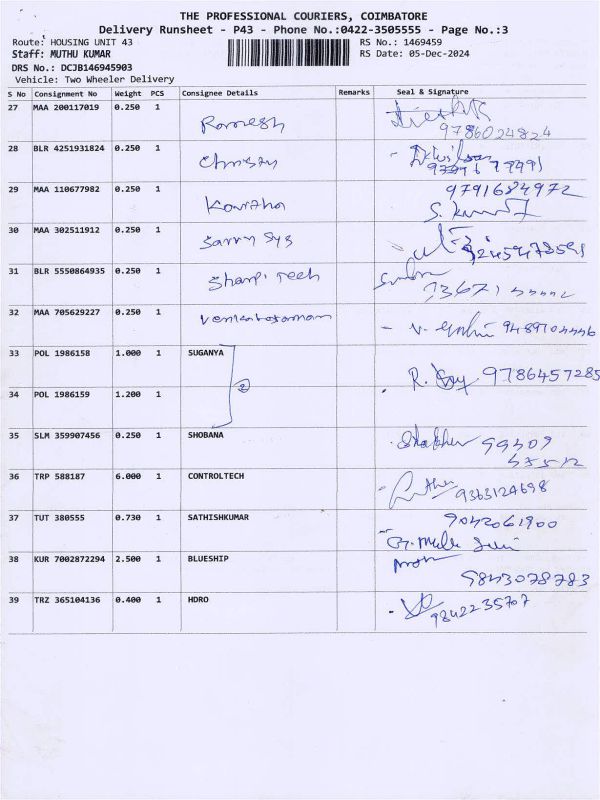 THE PROFESSIONAL COURIERS, COIMBATORE
Delivery Runsheet - P43 - Phone No.:0422-3505555 - Page No.:3
Route: HOUSING UNIT 43 RS No.: 1469459
Staff: MUTHU KUMAR RS Date: 05-Dec-2024
DRS No.: DCJB146945903
Vehicle: Two Wheeler Delivery
S No Consignment No Weight PCS Consignee Details Remarks Seal & Signature
27 MAA 200117019 0.250 1 Ramesh
9786024824
28 BLR 4251931824 0.250 1
29 MAA 110677982 0.250 1 9791684972
Kavitha S.
30 MAA 302511912 0.250 1
Sanry Sys
31 BLR 5550864935 0.250 1
Sharpi Tech
32 MAA 705629227 0.250 1 Venkataraman
- V. 9489704446
33 POL 1986158 1.000 1 SUGANYA
2 R. 9786457285
34 POL 1986159 1.200 1
35 SLM 359907456 0.250 1 SHOBANA
36 TRP 588187 6.000 1 CONTROLTECH
9363124698
37 TUT 380555 0.730 1 SATHISHKUMAR 9042061900
38 KUR 7002872294 2.500 1 BLUESHIP
9843078783
39 TRZ 365104136 0.400 1 HDRO
9842235707